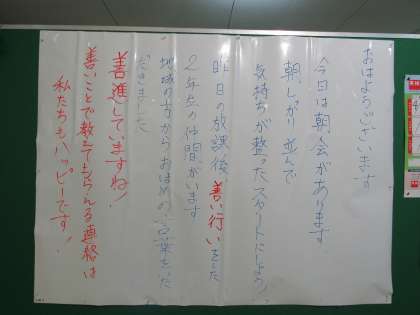 おはようございます
今日は朝会があります
朝、しっかり並んで
気持ちが整ったスタートにしよう!
昨日の放課後、善い行いをした
2年生の仲間がいます
地域の方からおほめの言葉をいた
だきました
善進していますね!
善いことで教えてもらえる連絡は
私たちもハッピーです!